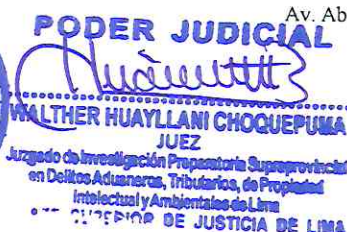 Av. Ab
PODER JUDICIAL
WALTHER HUAYLLANI CHOQUEPUMA
JUEZ
Juzgado de Investigación Preparatoria Supraprovincial
en Delitos Aduaneros, Tributarios, de Propiedad
Intelectual y Ambientales de Lima
SUPERIOR DE JUSTICIA DE LIMA